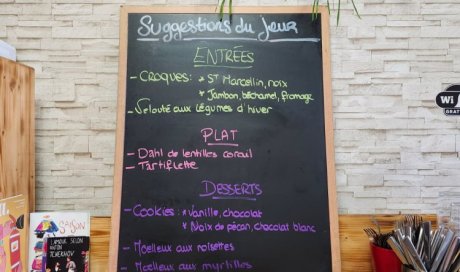 Suggestions du jour
ENTRÉES
- Croques: * St Marcellin, noix
* Jambon, béchamel, fromage
- Velouté aux légumes d'hiver
PLAT
- Dahl de lentilles corail
- Tartiflette
DESSERTS
- Cookies: * Vanille, chocolat
* Noix de pécan, chocolat blanc
- Moelleux aux noisettes
- Moelleux aux myrtilles
Wi
GRAT
SAISON
L'AMOUR SELON
ANTON
TCHEKHOV